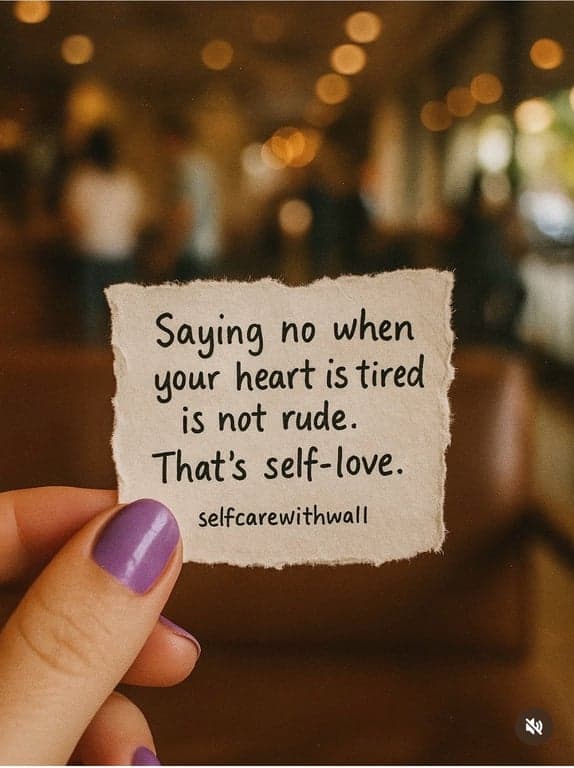 Saying no when
your heart is tired
is not rude.
That's self-love.
selfcarewithwall